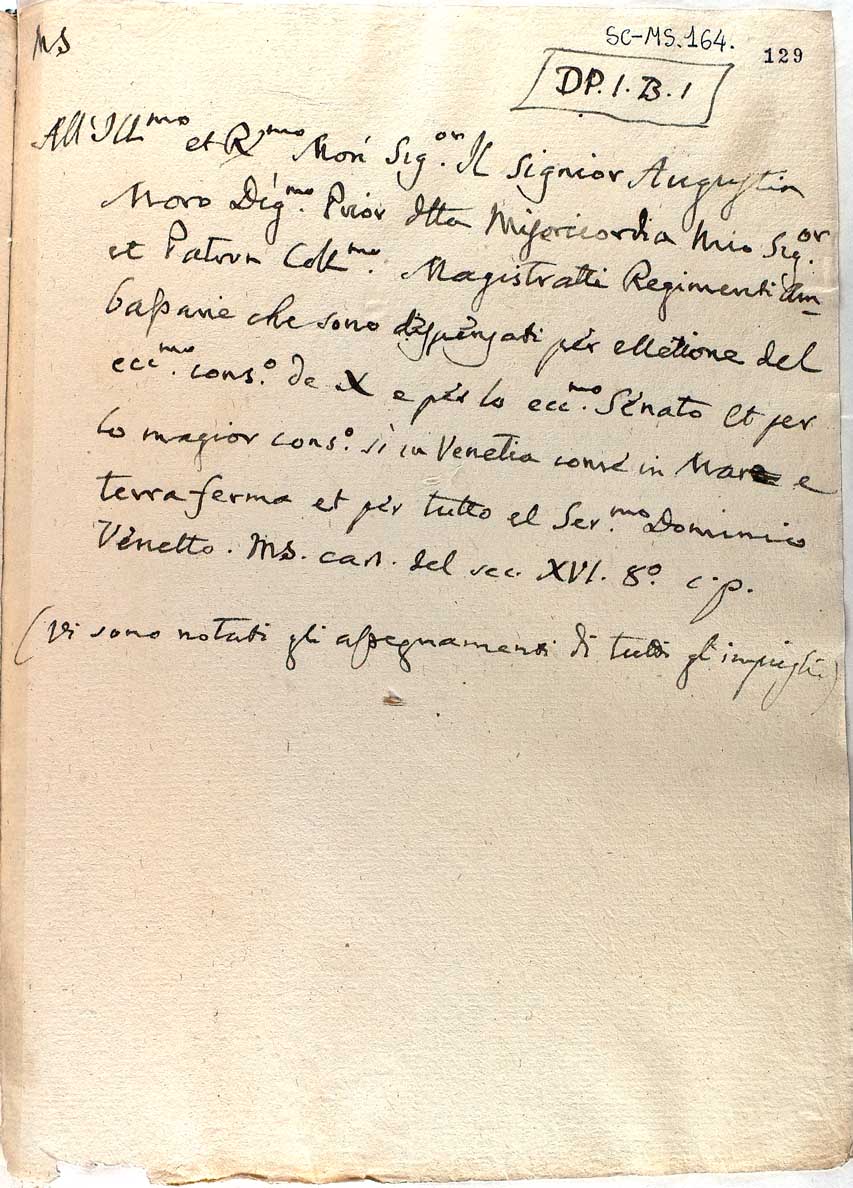 MS
SC-MS.164.
129
DP.1.B.1
All'Ill.mo et R.mo Mon Sig.or Il Signior Augustin
Moro Dig.mo Prior dtta Misericordia Mio Sig.or
et Patron Coll.mo. Magistratti Regimenti Am-
bassarie che sono dispensati per elletione del
ecc.mo cons.o de X e per lo ecc.mo Senato Et per
lo magior cons.o sì in Venetia come in Mare e
terra ferma et per tutto el Ser.mo Dominio
Venetto. MS. cart. del sec. XVI. 8.o c.p.
(Vi sono notati gli assegnamenti di tutti gl'impieghi)